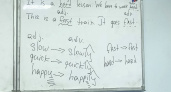 It is a hard lesson. We have to work hard
adj.
This is a fast train. It goes fast.
adj. adv.
slow → slowly
quick → quickly
happy → happily
fast → fast
hard → hard